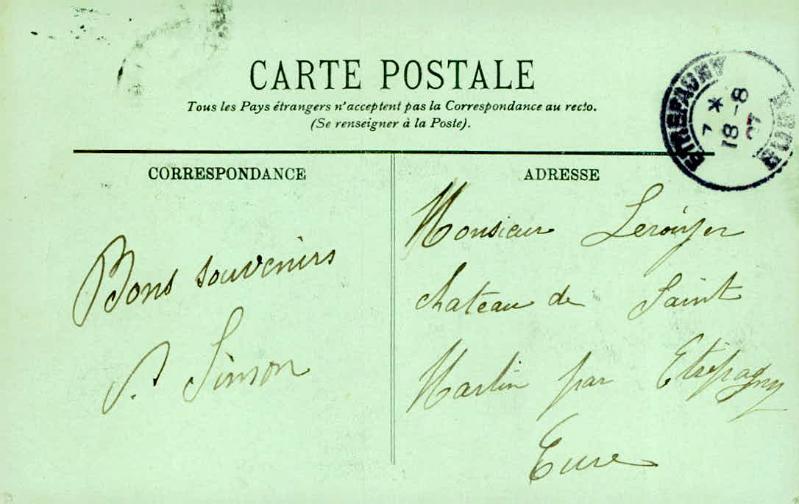 CARTE POSTALE
Tous les Pays étrangers n'acceptent pas la Correspondance au recto.
(Se renseigner à la Poste).
ETREPAGNY
7 * 18 -8 07
EURE
CORRESPONDANCE
ADRESSE
Bons souvenirs
P. Simon
Monsieur Leroÿer
chateau de Saint
Martin par Etrépagny
Eure